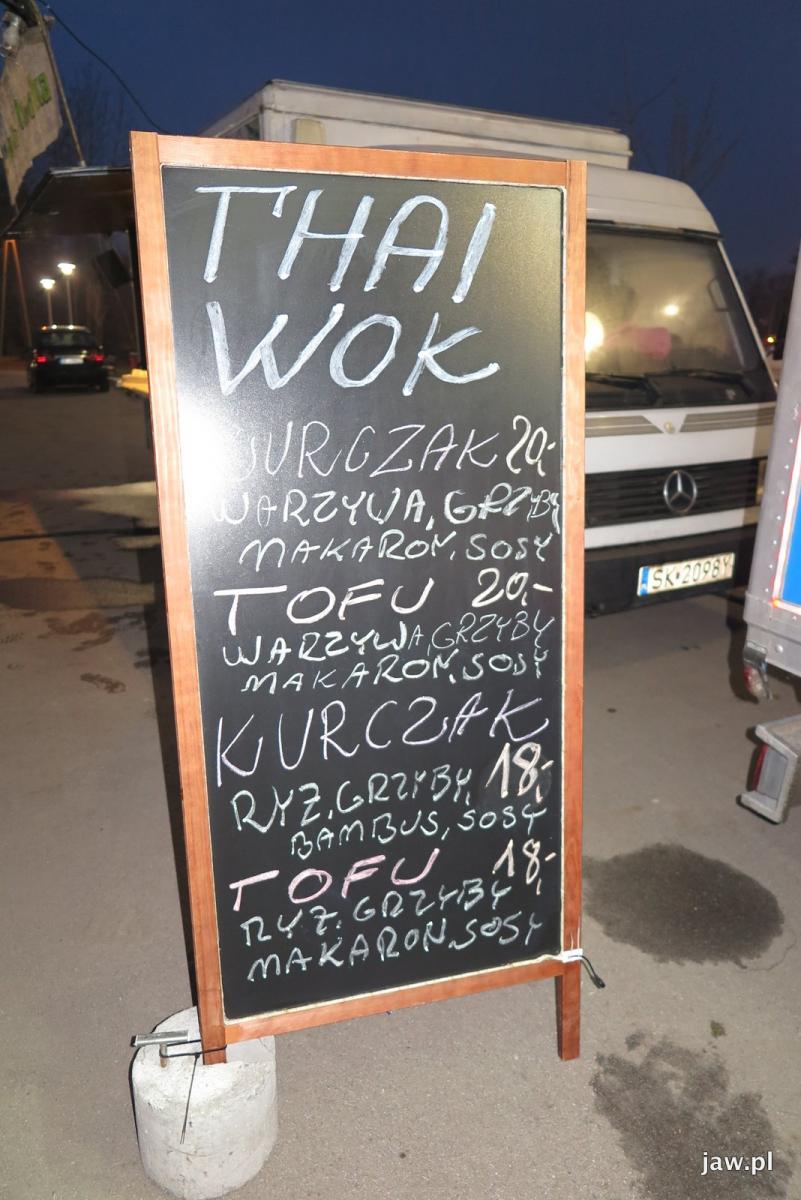 THAI
WOK
KURCZAK 20,-
WARZYWA, GRZYBY
MAKARON, SOSY
TOFU 20,-
WARZYWA, GRZYBY
MAKARON, SOSY
KURCZAK
RYŻ, GRZYBY, 18,-
BAMBUS, SOSY
TOFU 18,-
RYŻ, GRZYBY
MAKARON, SOSY
SK 2098Y
jaw.pl